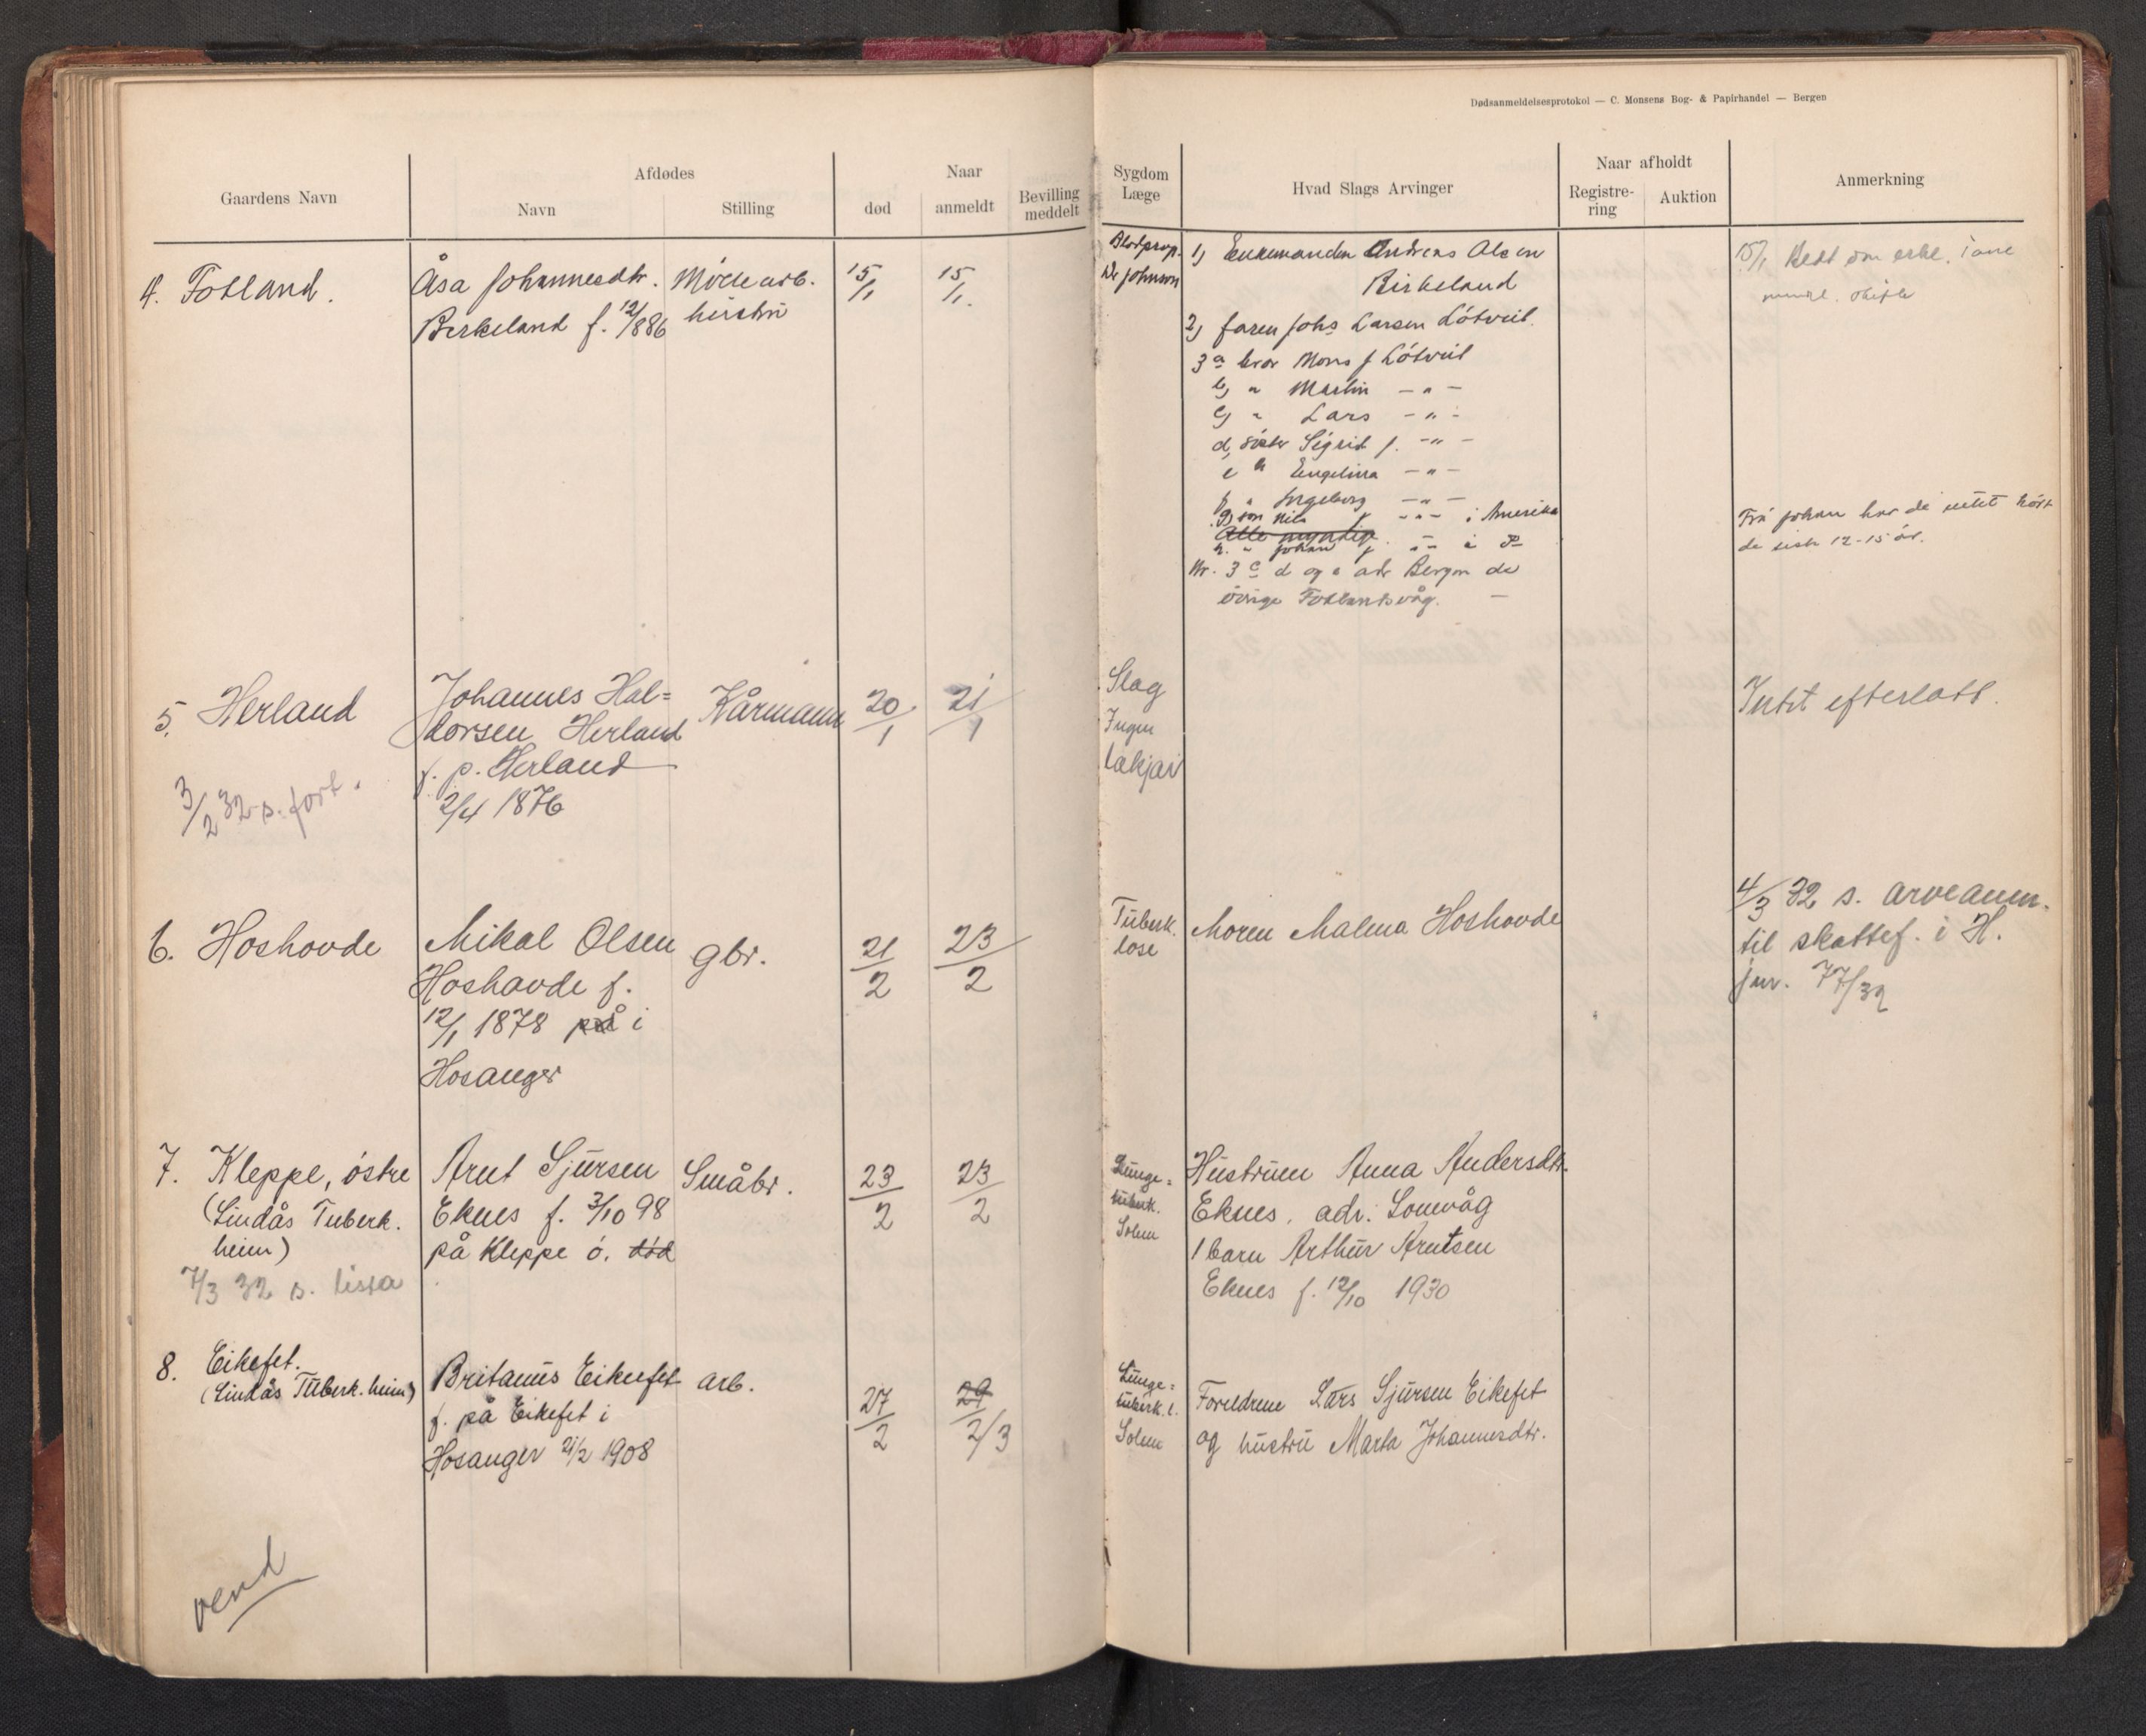 Dødsanmeldelsesprotokol — C. Monsens Bog- & Papirhandel — Bergen
Gaardens Navn
Afdødes
Navn
Stilling
Naar
død
anmeldt
Bevilling
meddelt
Sygdom
Læge
Hvad Slags Arvinger
Naar afholdt
Registre-
ring
Auktion
Anmerkning
4. Fotland.
Åsa Johannesdtr.
Birkeland f. 12/1 886
hustru
15/1
15/1.
Blodprop.
Dr Johnson
1) Enkemanden Andreas Olsen
Birkeland
2) faren Johs Larsen Lótveit.
3 a bror Mons J Lótveit
b) " Martin — " —
c) " Lars — " —
d, sóster Sigrid J. — " —
e " Engelina — " —
f " Ingeborg — " —
g) bror Nils J — " — i Amerika
Alle myndige
h. " Johan J " i do
Nr. 3 c d og e adr Bergen de
óvrige Fotlandsvåg. —
15/1 Bedt om erkl.
Frå Johan har de intet hórt
de siste 12-15 år.
5. Herland
3/2 32 s. fort.
Johannes Hal=
dorsen Herland
f. p. Herland
2/4 1876
Kårmann
20/1
21/1
Slag
Ingen
lækjar
Intet efterlatt.
6. Hoshovde
Mikal Olsen
Hoshovde f.
12/1 1878 på i
Hosanger
gbr.
21/2
23/2
Tuberk.
lose
Moren Malena Hoshovde
4/3 32 s. arveanm.
til skattef. i H.
jnr. 77/32
7. Kleppe, óstre
(Lindås Tuberk.
heim)
7/3 32 s. lissa
Arnt Sjursen
Eknes f. 3/10 98
på Kleppe ó. död
Småbr.
23/2
23/2
Lunge=
tuberk.
Solem
Hustruen Anna Andersdtr.
Eknes, adr. Sonevåg
1 barn Arthur Arntsen
Eknes f. 12/10 1930
8. Eikefet.
(Lindås Tuberk. heim)
Britanus Eikefet
f. på Eikefet i
Hosanger 21/2 1908
arb.
27/2
29
2/3
Lunge=
tuberk. l.
Solem
Foreldrene Lars Sjursen Eikefet
og hustru Marta Johannesdtr.
vend